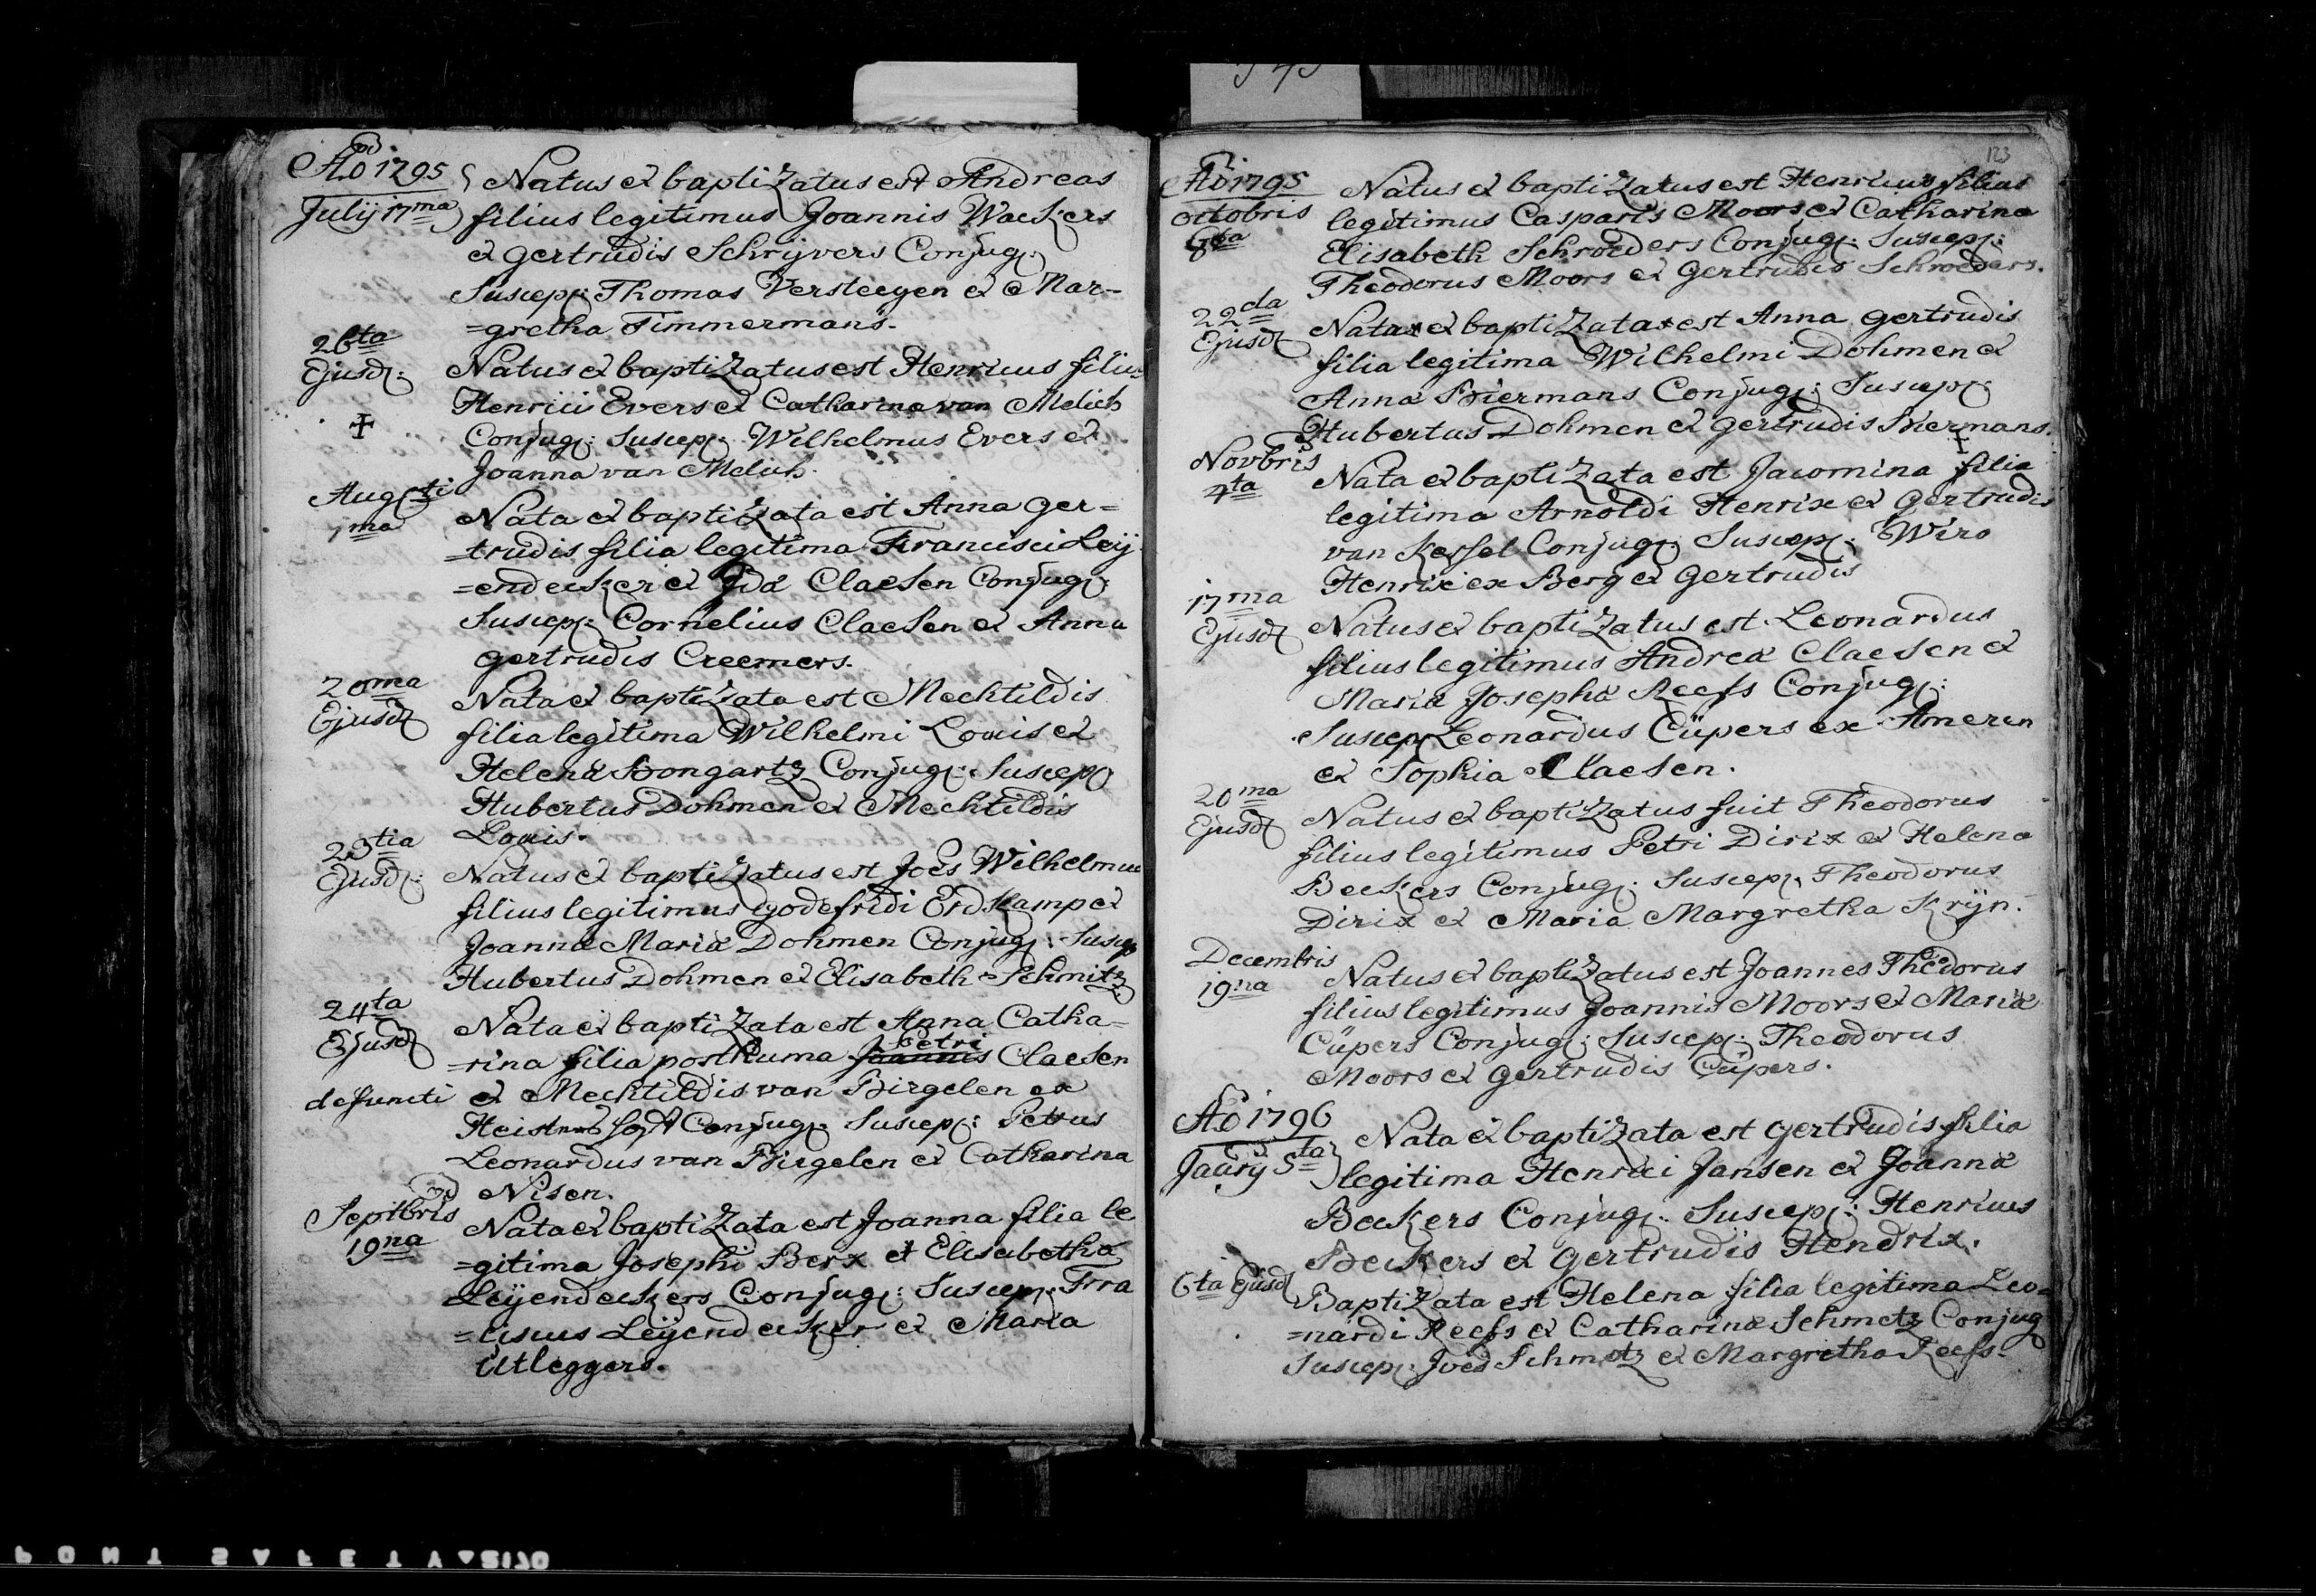 Aõ 1795
July 17ma
Natus et baptizatus est Andreas
filius legitimus Joannis Wackers
et gertrudis Schrijvers Conjug:
Suscep: Thomas Versteegen et Mar-
=gretha Timmermans.
26ta
Ejusd:
Natus et baptizatus est Henricus filius
Henrici Evers et Catharina van Melich
Conjug: Suscep: Wilhelmus Evers et
Joanna van Melich.
Augsti
1ma
Nata et baptizata est Anna ger=
=trudis filia legitima Francisci Leij
=endecker et Ida Claesen Conjug:
Suscep: Cornelius Claesen et Anna
gertrudis Creemers.
20ma
Ejusd
Nata et baptizata est Mechtildis
filia legitima Wilhelmi Louis et
Helena Bongartz Conjug: Suscep
Hubertus Dohmen et Mechtildis
Louis.
23tia
Ejusd:
Natus et baptizatus est Joes Wilhelmus
filius legitimus godefridi Erdkamp et
Joanna Maria Dohmen Conjug: Suscep
Hubertus Dohmen et Elisabeth Schmitz
24ta
Ejusd
Nata et baptizata est Anna Catha=
Petri
=rina filia posthuma Joannis Claesen
defuncti et Mechtildis van Birgelen ex
Conjug: Suscep: Petrus
Leonardus van Birgelen et Catharina
Nisen.
Septbris
19na
Nata et baptizata est Joanna filia le
=gitima Josephi Berx et Elisabetha
Leÿendeckers Conjug: Suscep: Fra
=ciscus Leÿendecker et Maria
Utleggers.
123
Aõ 1795
Octobris
6ta
Natus et baptizatus est Henricus filius
legitimus Casparis Moors et Catharina
Elisabeth Schroeders Conjug: Suscep:
Theodorus Moors et gertrudis Schroeders.
22da
Ejusd
Nata et baptizata est Anna gertrudis
filia legitima Wilhelmi Dohmen et
Anna Biermans Conjug: Suscep:
Hubertus Dohmen et gertrudis Biermans.
Novbris
4ta
Nata et baptizata est Jacomina filia
legitima Arnoldi Henrix et gertrudis
van Kessel Conjug: Suscep: Wiro
Henrix ex Berg et gertrudis
17ma
Ejusd
Natus et baptizatus est Leonardus
filius legitimus Andrea Claesen et
Maria Josepha Reefs Conjug:
Suscep Leonardus Cüpers ex Ameren
et Sophia Claesen.
20ma
Ejusd
Natus et baptizatus fuit Theodorus
filius legitimus Petri Dirix et Helena
Beckers Conjug: Suscep: Theodorus
Dirix et Maria Margretha Krijn.
Decembris
19na
Natus et baptizatus est Joannes Thedorus
filius legitimus Joannis Moors et Maria
Cüpers Conjug: Suscep: Theodorus
Moors et gertrudis Cüpers.
Aõ 1796
Jaury 5ta
Nata et baptizata est gertrudis filia
legitima Henrici Jansen et Joanna
Beckers Conjug: Suscep: Henricus
Beckers et gertrudis Hendrix.
6ta Ejusd
Baptizata est Helena filia legitima Leo=
=nardi Reefs et Catharina Schmetz Conjug
Suscep: Joes Schmetz et Margretha Reefs.